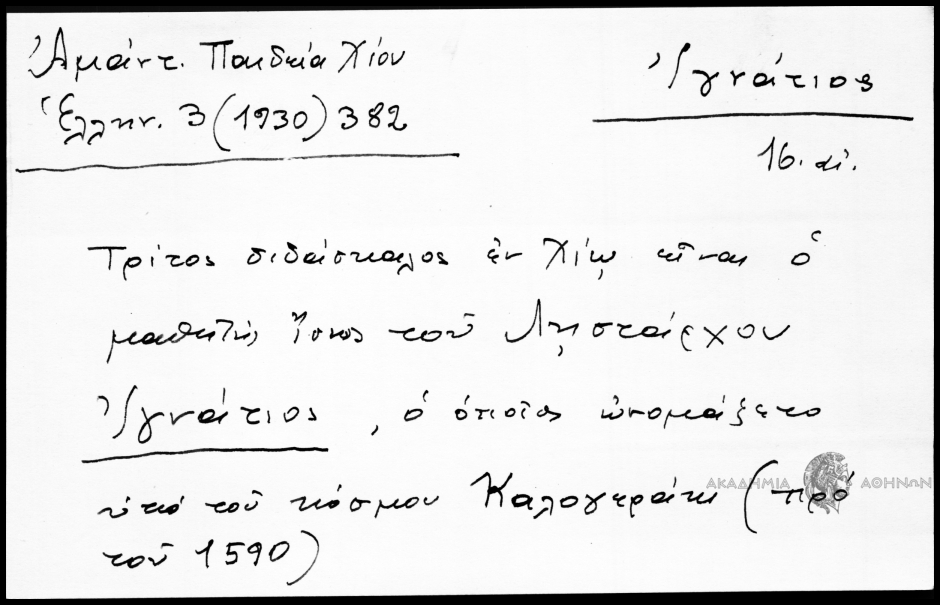 Ἀμάντ. Παιδεία Χίου
Ἑλλην. 3 (1930) 382
Ἰγνάτιος
16. αἰ.
Τρίτος διδάσκαλος ἐν Χίῳ εἶναι ὁ
μαθητής ἴσως τοῦ Ληστάρχου
Ἰγνάτιος, ὁ ὁποῖος ὠνομάζετο
ὑπό τοῦ κόσμου Καλογεράκι (πρό
τοῦ 1590)
ΑΚΑΔΗΜΙΑ ΑΘΗΝΩΝ